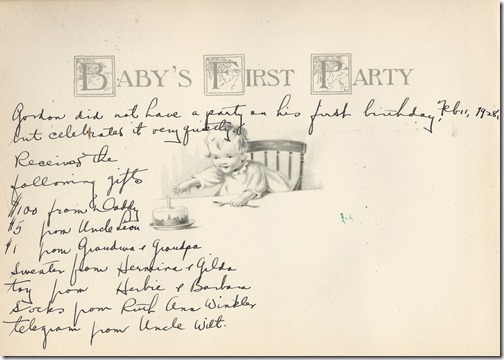 BABY'S FIRST PARTY
Gordon did not have a party on his first birthday, Feb 11, 1928,
but celebrated it very quietly.
Received the
following gifts
$100 from Daddy
$5 from Uncle Leon
$1 from Grandma & Grandpa
Sweater from Hermina & Gilda
toy from Herbie & Barbara
Socks from Ruth Ann Winkler
telegram from Uncle Wilt.